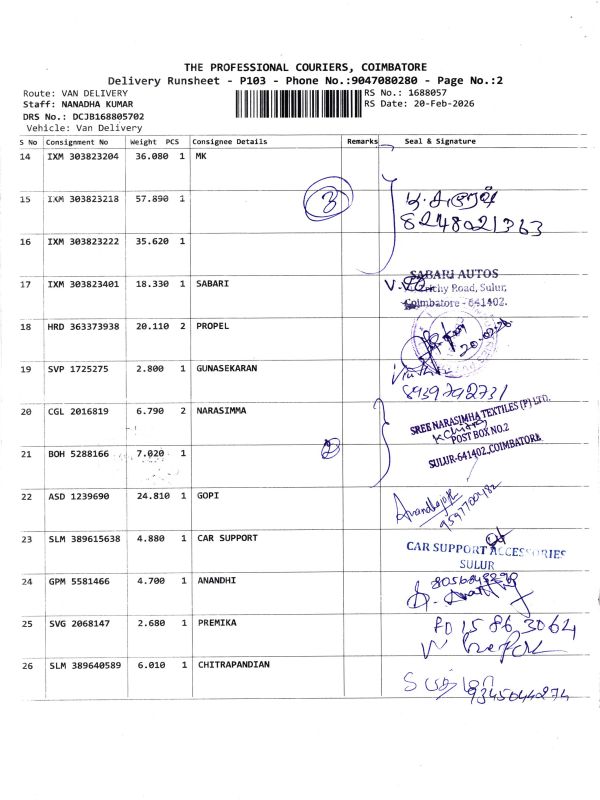 THE PROFESSIONAL COURIERS, COIMBATORE
Delivery Runsheet - P103 - Phone No.:9047080280 - Page No.:2
Route: VAN DELIVERY RS No.: 1688057
Staff: NANADHA KUMAR RS Date: 20-Feb-2026
DRS No.: DCJB168805702
Vehicle: Van Delivery
S No Consignment No Weight PCS Consignee Details Remarks Seal & Signature
14 IXM 303823204 36.080 1 MK
15 IXM 303823218 57.890 1 3
8248021363
16 IXM 303823222 35.620 1
17 IXM 303823401 18.330 1 SABARI
SABARI AUTOS
Trichy Road, Sulur,
Coimbatore - 641402.
18 HRD 363373938 20.110 2 PROPEL
19 SVP 1725275 2.800 1 GUNASEKARAN
8939792731
20 CGL 2016819 6.790 2 NARASIMMA
SREE NARASIMHA TEXTILES (P) LTD.
POST BOX NO.2
SULUR-641402,COIMBATORE
21 BOH 5288166 7.020 1 2
22 ASD 1239690 24.810 1 GOPI
23 SLM 389615638 4.880 1 CAR SUPPORT
CAR SUPPORT ACCESSORIES
SULUR
24 GPM 5581466 4.700 1 ANANDHI
25 SVG 2068147 2.680 1 PREMIKA
26 SLM 389640589 6.010 1 CHITRAPANDIAN
9345044274